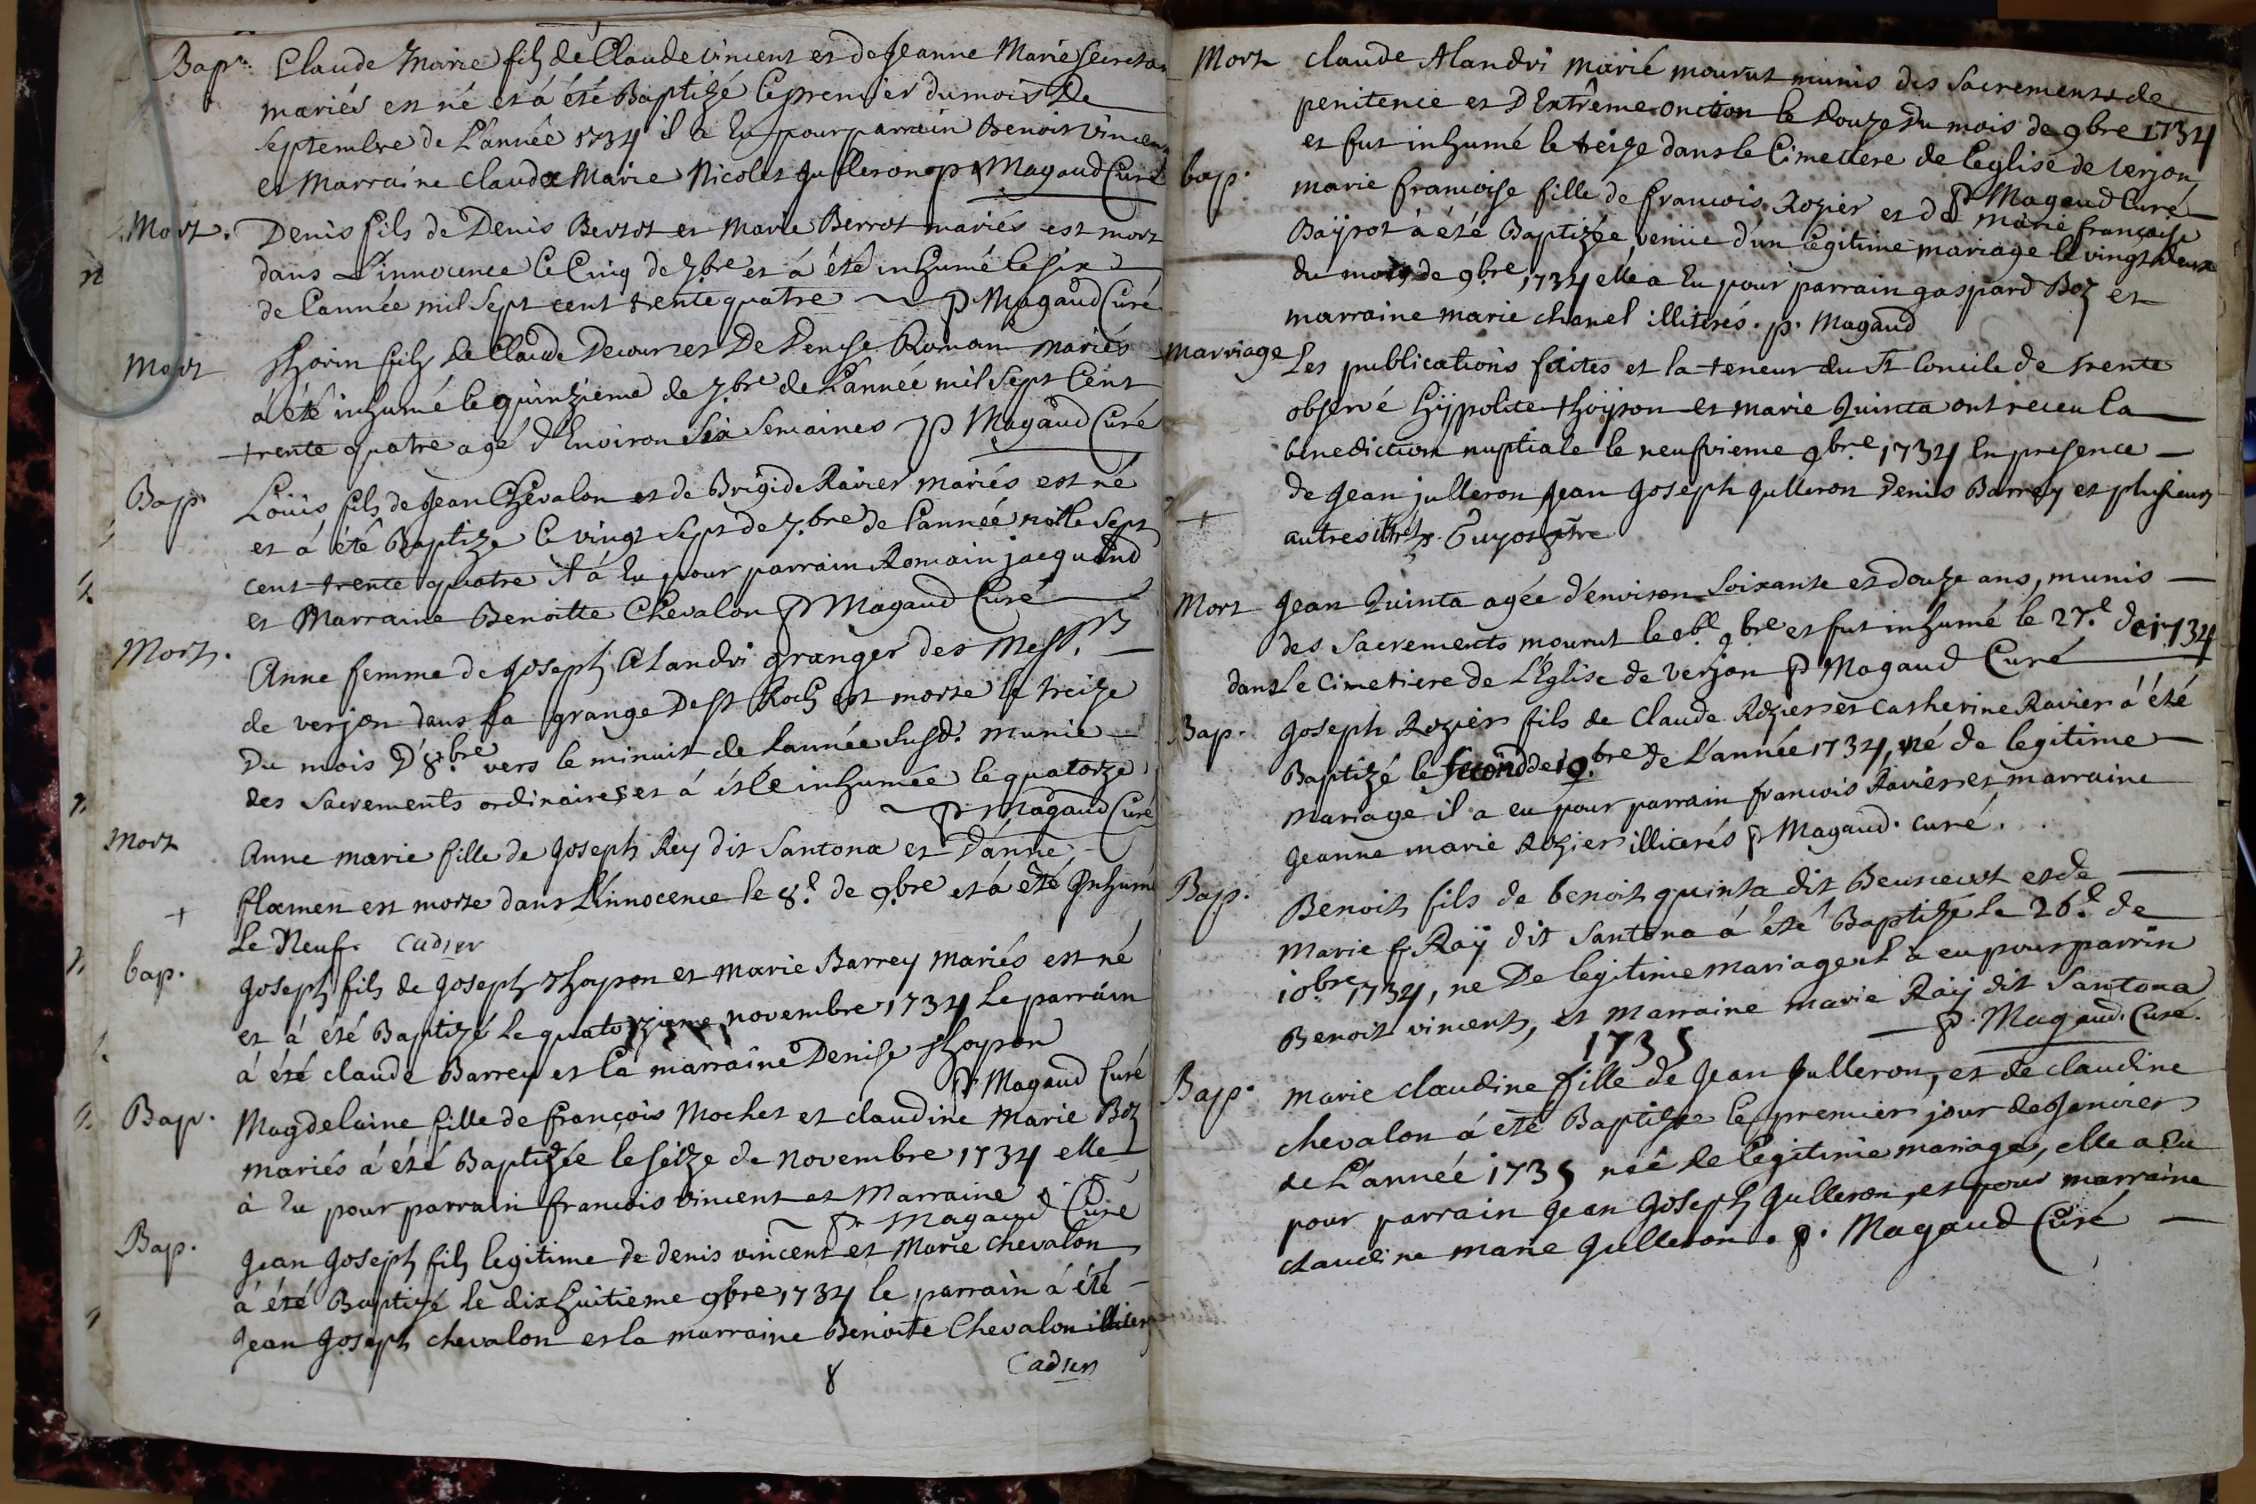 Bap. Claude Marie fils de Claude vincent et de Jeanne Marie Secretan
mariés est né et á été Baptizé le premier du mois de
Septembre de L'année 1734 il a Eu pour parrain Benoit vincent
et Marraine Claude Marie Nicolet Julleron p Magaud Curé
Mort. Denis fils de Denis Bertot et Marie Berrot mariés est mort
dans L'innocence le Cinq de 7bre et á été inhumé le six
de L'année mil Sept cent trente quatre p Magaud Curé
Mort fils de Claude et De Denise Romain mariés
á été inhumé le quinzieme de 7.bre de L'année mil Sept Cent
trente quatre agé d'Environ Six Semaines p Magaud Curé
Bap. Loüis fils de Jean Chevalon et de Brigide Ravier mariés est né
et á été Baptize le vingt Sept de 7.bre de L'année mille Sept
cent trente quatre il á Eu pour parrain Romain jacquand
et Marraine Benoitte Chevalon p Magaud Curé
Mort. Anne femme de Joseph Alandri granger des Mess.rs
de verjon dans la grange de st Roch est morte le treize
Du mois D'8.bre vers le minuit de L'année susd. munie
des Sacrements ordinaires et á étée inhumée le quatorze
p Magaud Curé
Mort Anne marie fille de Joseph Rey dit Santona et D'anne
flamen est morte dans L'innocence le 8.e de 9.bre et á été Inhumé
+ Le Neuf. Cadier
bap. Joseph fils de Joseph thoyson et Marie Barrey mariés est né
et á été Baptizé le quatorzieme novembre 1734 Le parrain
á été claude Barrey et la marraine Denise thoyson
p Magaud Curé
Bap. Magdelaine fille de françois Mochet et claudine Marie Boz
mariés á été Baptizée le seize de Novembre 1734 elle
á Eu pour parrain francois vincent et Marraine
p Magaud Curé
Bap. Jean Joseph fils legitime de denis vincent et Marie chevalon
á été Baptizé le dixhuitieme 9bre 1734 le parrain á été
Jean Joseph chevalon et la marraine Benoite Chevalon
Cadier
8
Mort claude Alandri Marié mourut munis des Sacrements de
penitence et D'Extrême onction le douze du mois de 9bre 1734
et fut inhumé le treize dans le Cimettere de L'eglise de verjon
p Magaud Curé
bap. marie francoise fille de francois Rozier et de marie françoise
Baÿrot á été Baptizée, venüe d'un legitime mariage le vingt deux
du mois de 9bre 1734 elle a Eu pour parrain gaspard Boz et
marraine marie chanel illiterés. p. Magaud
Marriage Les publications faites et la teneur du St Concile de trente
observé hÿppolite thoÿson et marie Quinta ont receu la
benediction nuptiale le neufvieme 9br.e 1734 En presence
de Jean julleron Jean Joseph Julleron Denis Barrey et plusieurs
autres Guyot
Mort Jean Quinta agée d'environ Soixante et douze ans, munis
des Sacrements mourut le 9bre et fut inhumé le 27.e de 1734
dans Le Cimetiere de L'Eglise de verjon p Magaud Curé
Bap. Joseph Rozier fils de Claude Rozier et Catherine Ravier á été
Baptizé le second de de L'année 1734, né de legitime
mariage il a eu pour parrain francois Ravier et marraine
Jeanne marie Rozier illiterés p Magaud. curé.
Bap. Benoit fils de benoit quinta dit et de
Marie f Raÿ dit Santona á été Baptizé le 26.e de
10bre 1734, ne De legitime mariage il a eu pour parrin
Benoit vincent, et marraine marie Raÿ dit Santona
p. Magaud. Curé.
1735
Bap. Marie Claudine fille de Jean Julleron, et de claudine
chevalon á été Baptizee le premier jour de Janvier
de L'année 1735 née de legitime mariage, elle a Eu
pour parrain Jean Joseph Julleron, et pour marraine
claudine marie Julleron. p. Magaud Curé